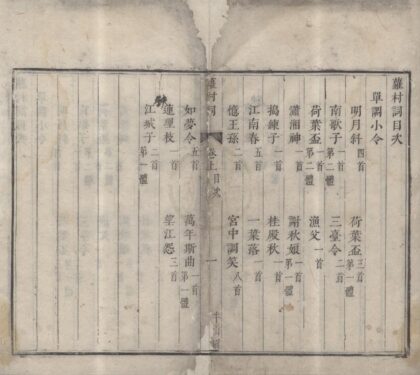 蘿村詞目次
單調小令
明月斜四首 荷葉盃三首
南歌子一首第二體 三臺令二首
荷葉盃一首第二體 漁父一首
瀟湘神一首 謝秋娘一首第一體
搗練子一首 桂殿秋一首
江南春五首 一葉落一首
憶王孫二首 宮中調笑八首
蘿村詞 卷上目次 一
如夢令五首 萬年斯曲一首第一體
蓮理枝一首 望江怨三首
江城子二首第一體